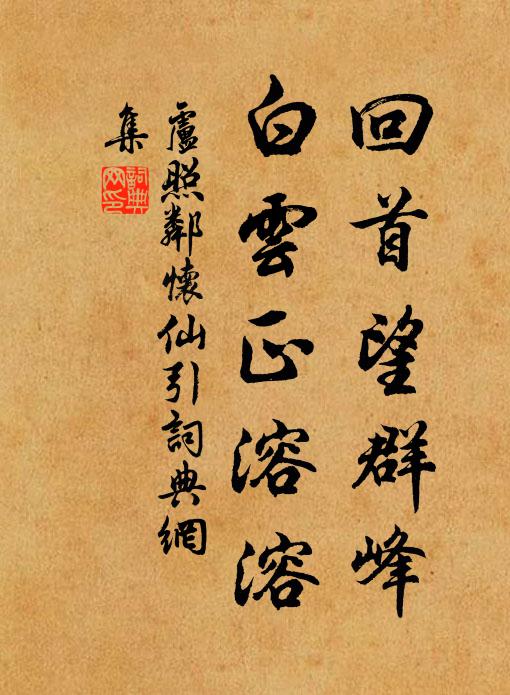 回首望群峰
白雲正溶溶
盧照鄰懷仙引詞典網
集
詞典
网印